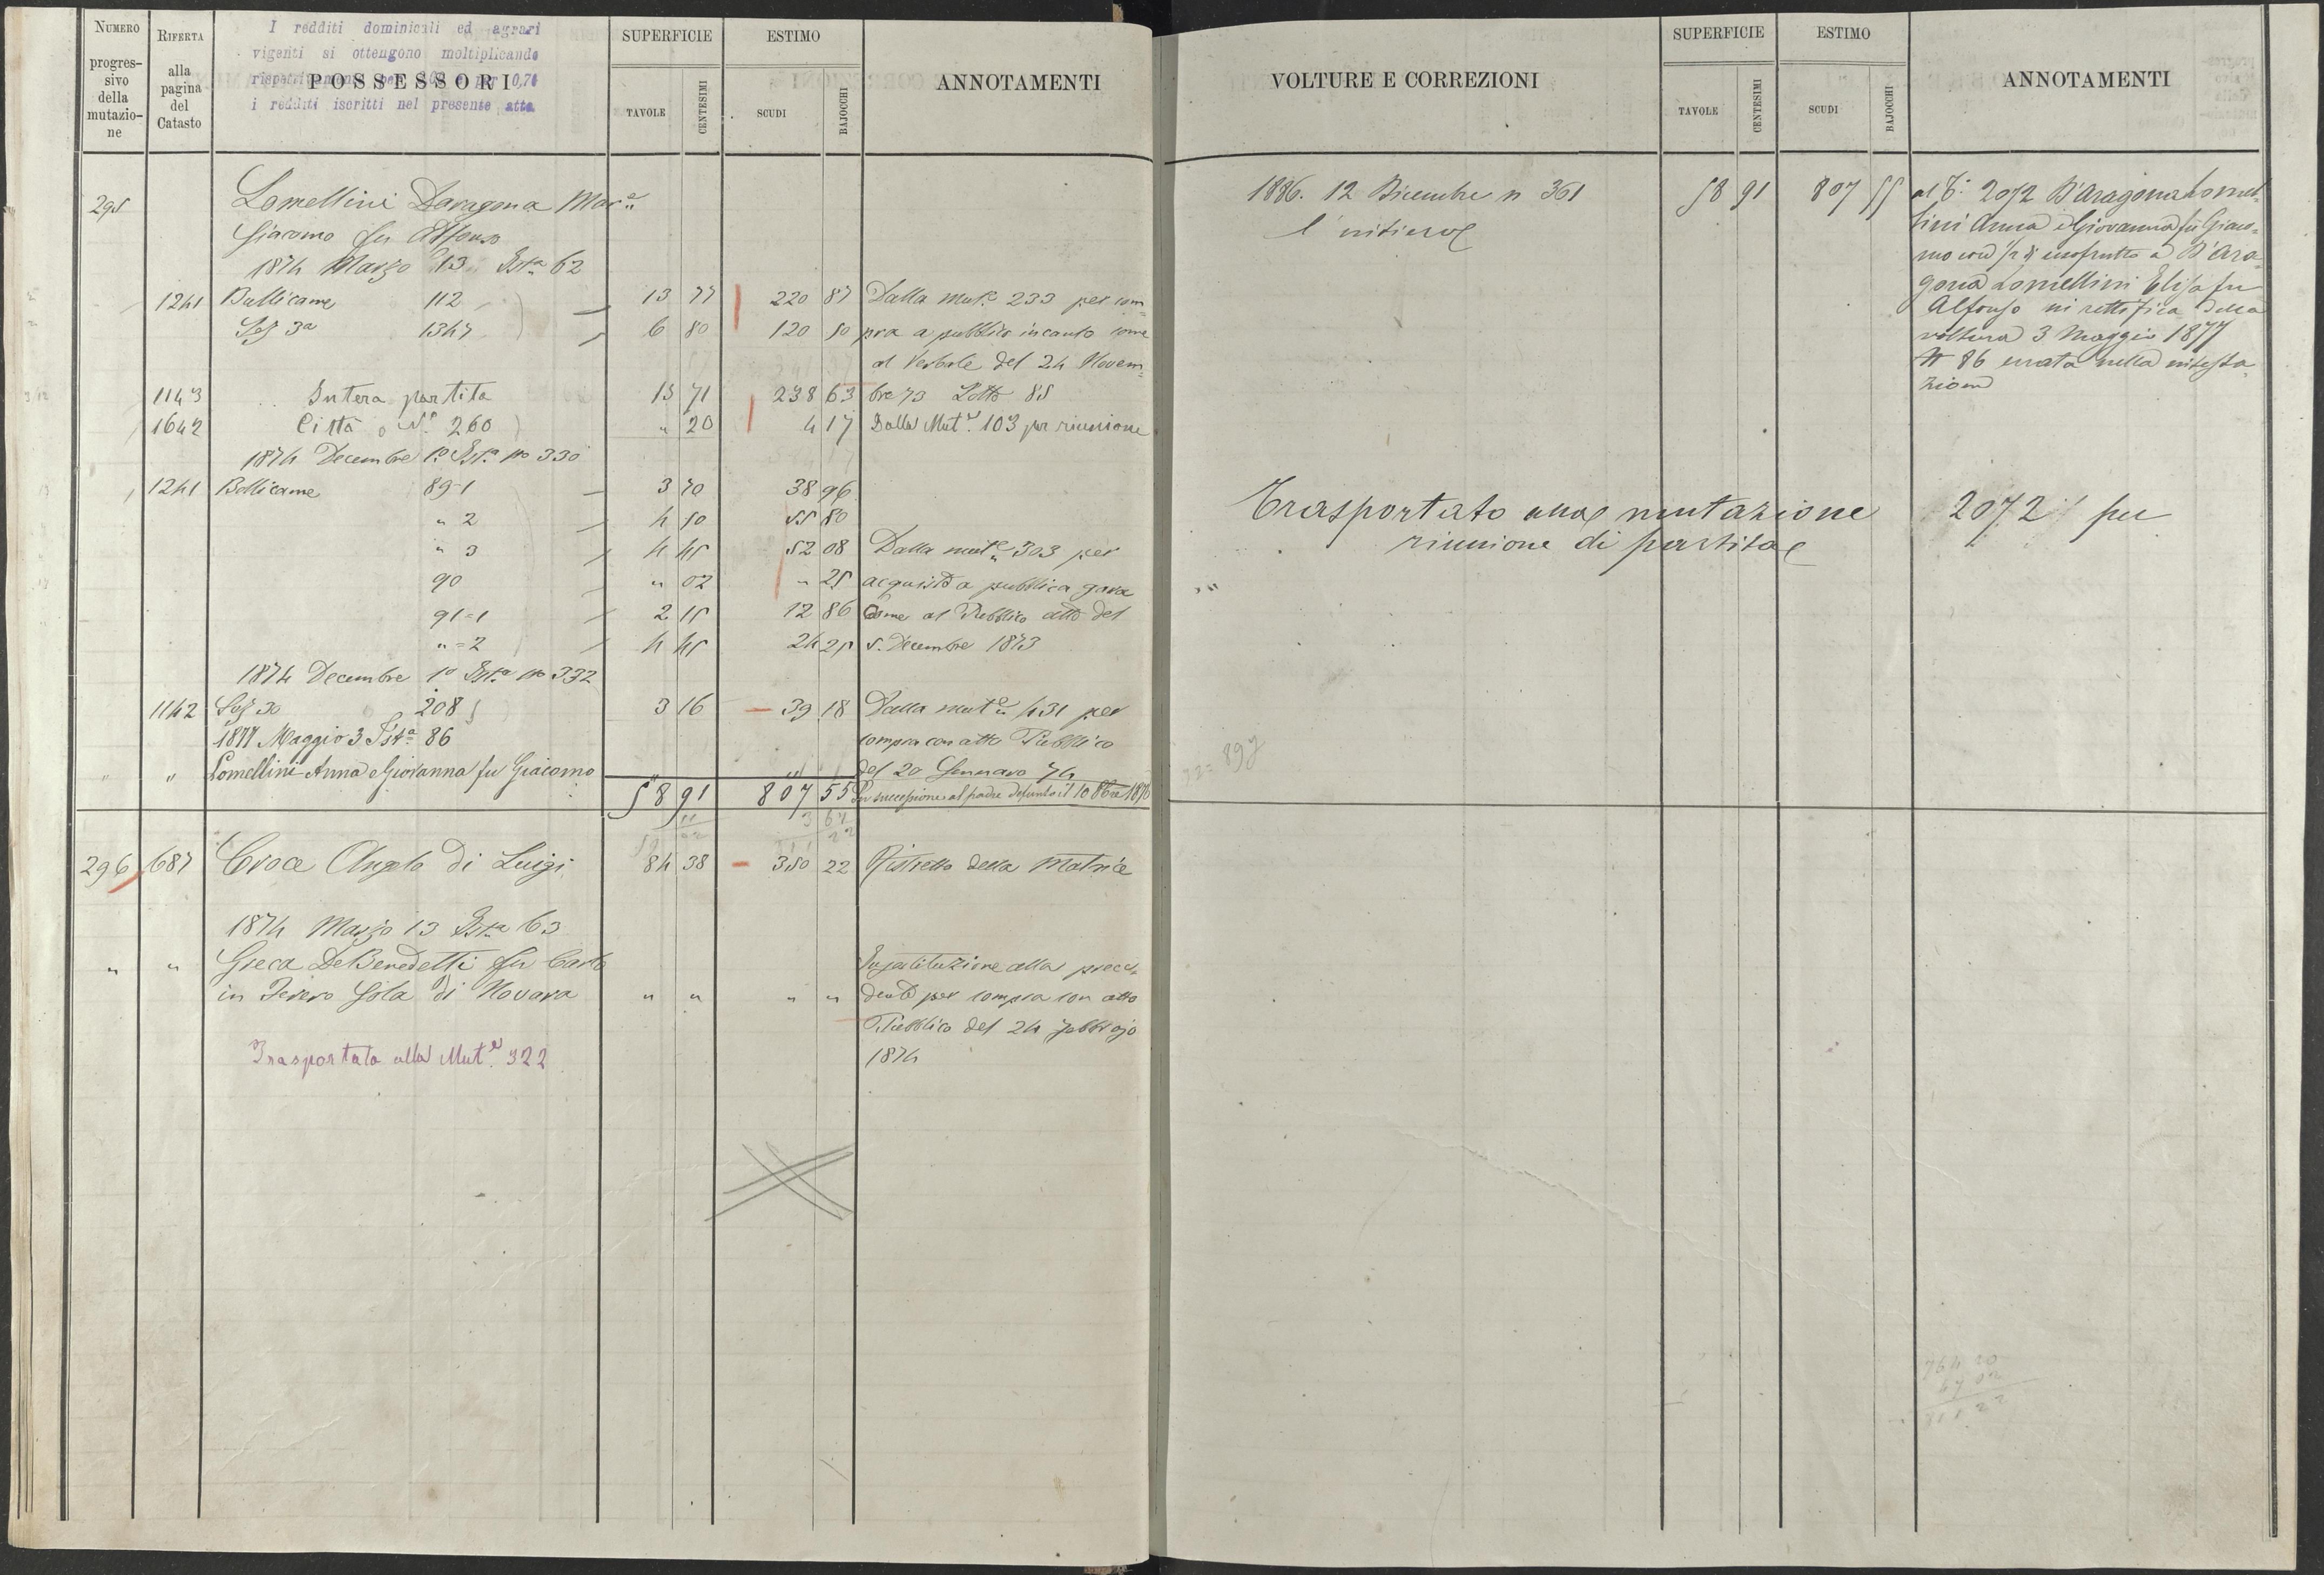 NUMERO progressivo della mutazione
RIFERTA alla pagina del Catasto
I redditi dominicali ed agrari
vigenti si ottengono moltiplicando
i redditi iscritti nel presente atto
POSSESSORI
SUPERFICIE TAVOLE CENTESIMI
ESTIMO SCUDI BAJOCCHI
ANNOTAMENTI
295 Lomellini Daragona Mar.e
Giacomo fu Alfonso
1874 Marzo 13 Ist.a 62
1241 Bullicame 112 13 77 220 87 Dalla mut.e 233 per com=
Sez 3a 1347 6 80 120 50 pra a pubblico incanto come
al Verbale del 24 Novem=
1143 Intera partita 15 71 238 63 bre 73 Lotto 85
1642 Città N.o 260 " 20 4 17 Dalla Mut.e 103 per riunione
1874 Decembre 1o Ist.a no 330
1241 Bullicame 89-1 3 70 38 96
" 2 4 50 55 80
" 3 4 45 52 08 Dalla mut.e 303 per
90 " 02 " 25 acquisto a pubblica gara
91=1 2 15 12 86 Come al Pubblico atto del
"=2 4 45 24 25 5. Decembre 1873
1874 Decembre 1o Ist.a no 332
1142 Sez 3a 208 3 16 39 18 Dalla mut.e 431 per
1877 Maggio 3 Ist.a 86 compra con atto Pubblico
" " Lomellini Anna e Giovanna fu Giacomo " " del 20 Gennaro 74
58 91 807 55 Per successione al padre defunto il 10 8bre 1876
3 67
296 687 Croce Angelo di Luigi 84 38 350 22 Ristretto della Matrice
1874 Marzo 13 Ist.a 63
" " Greca DeBenedetti fu Carlo Sostituzione alla prece=
in Isola di Novara " " " " dente per compra con atto
Pubblico del 24 febbrajo
Trasportata alla Mut.e 322 1874
VOLTURE E CORREZIONI
SUPERFICIE TAVOLE CENTESIMI
ESTIMO SCUDI BAJOCCHI
ANNOTAMENTI
1886. 12 Dicembre n 361 58 91 807 55 al N. 2072 D'Aragona Lomel=
l'intiero lini Anna e Giovanna fu Giaco=
mo con usofrutto a D'Ara=
gona Lomellini Elisa fu
Alfonso in rettifica della
voltura 3 Maggio 1877
N 86 errata nella intesta=
zione
Trasportato alla mutazione 2072 per
riunione di partita
897
764 20
47 02
811 22